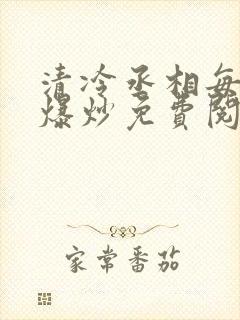 清冷丞相每
爆炒免费阅
家常番茄